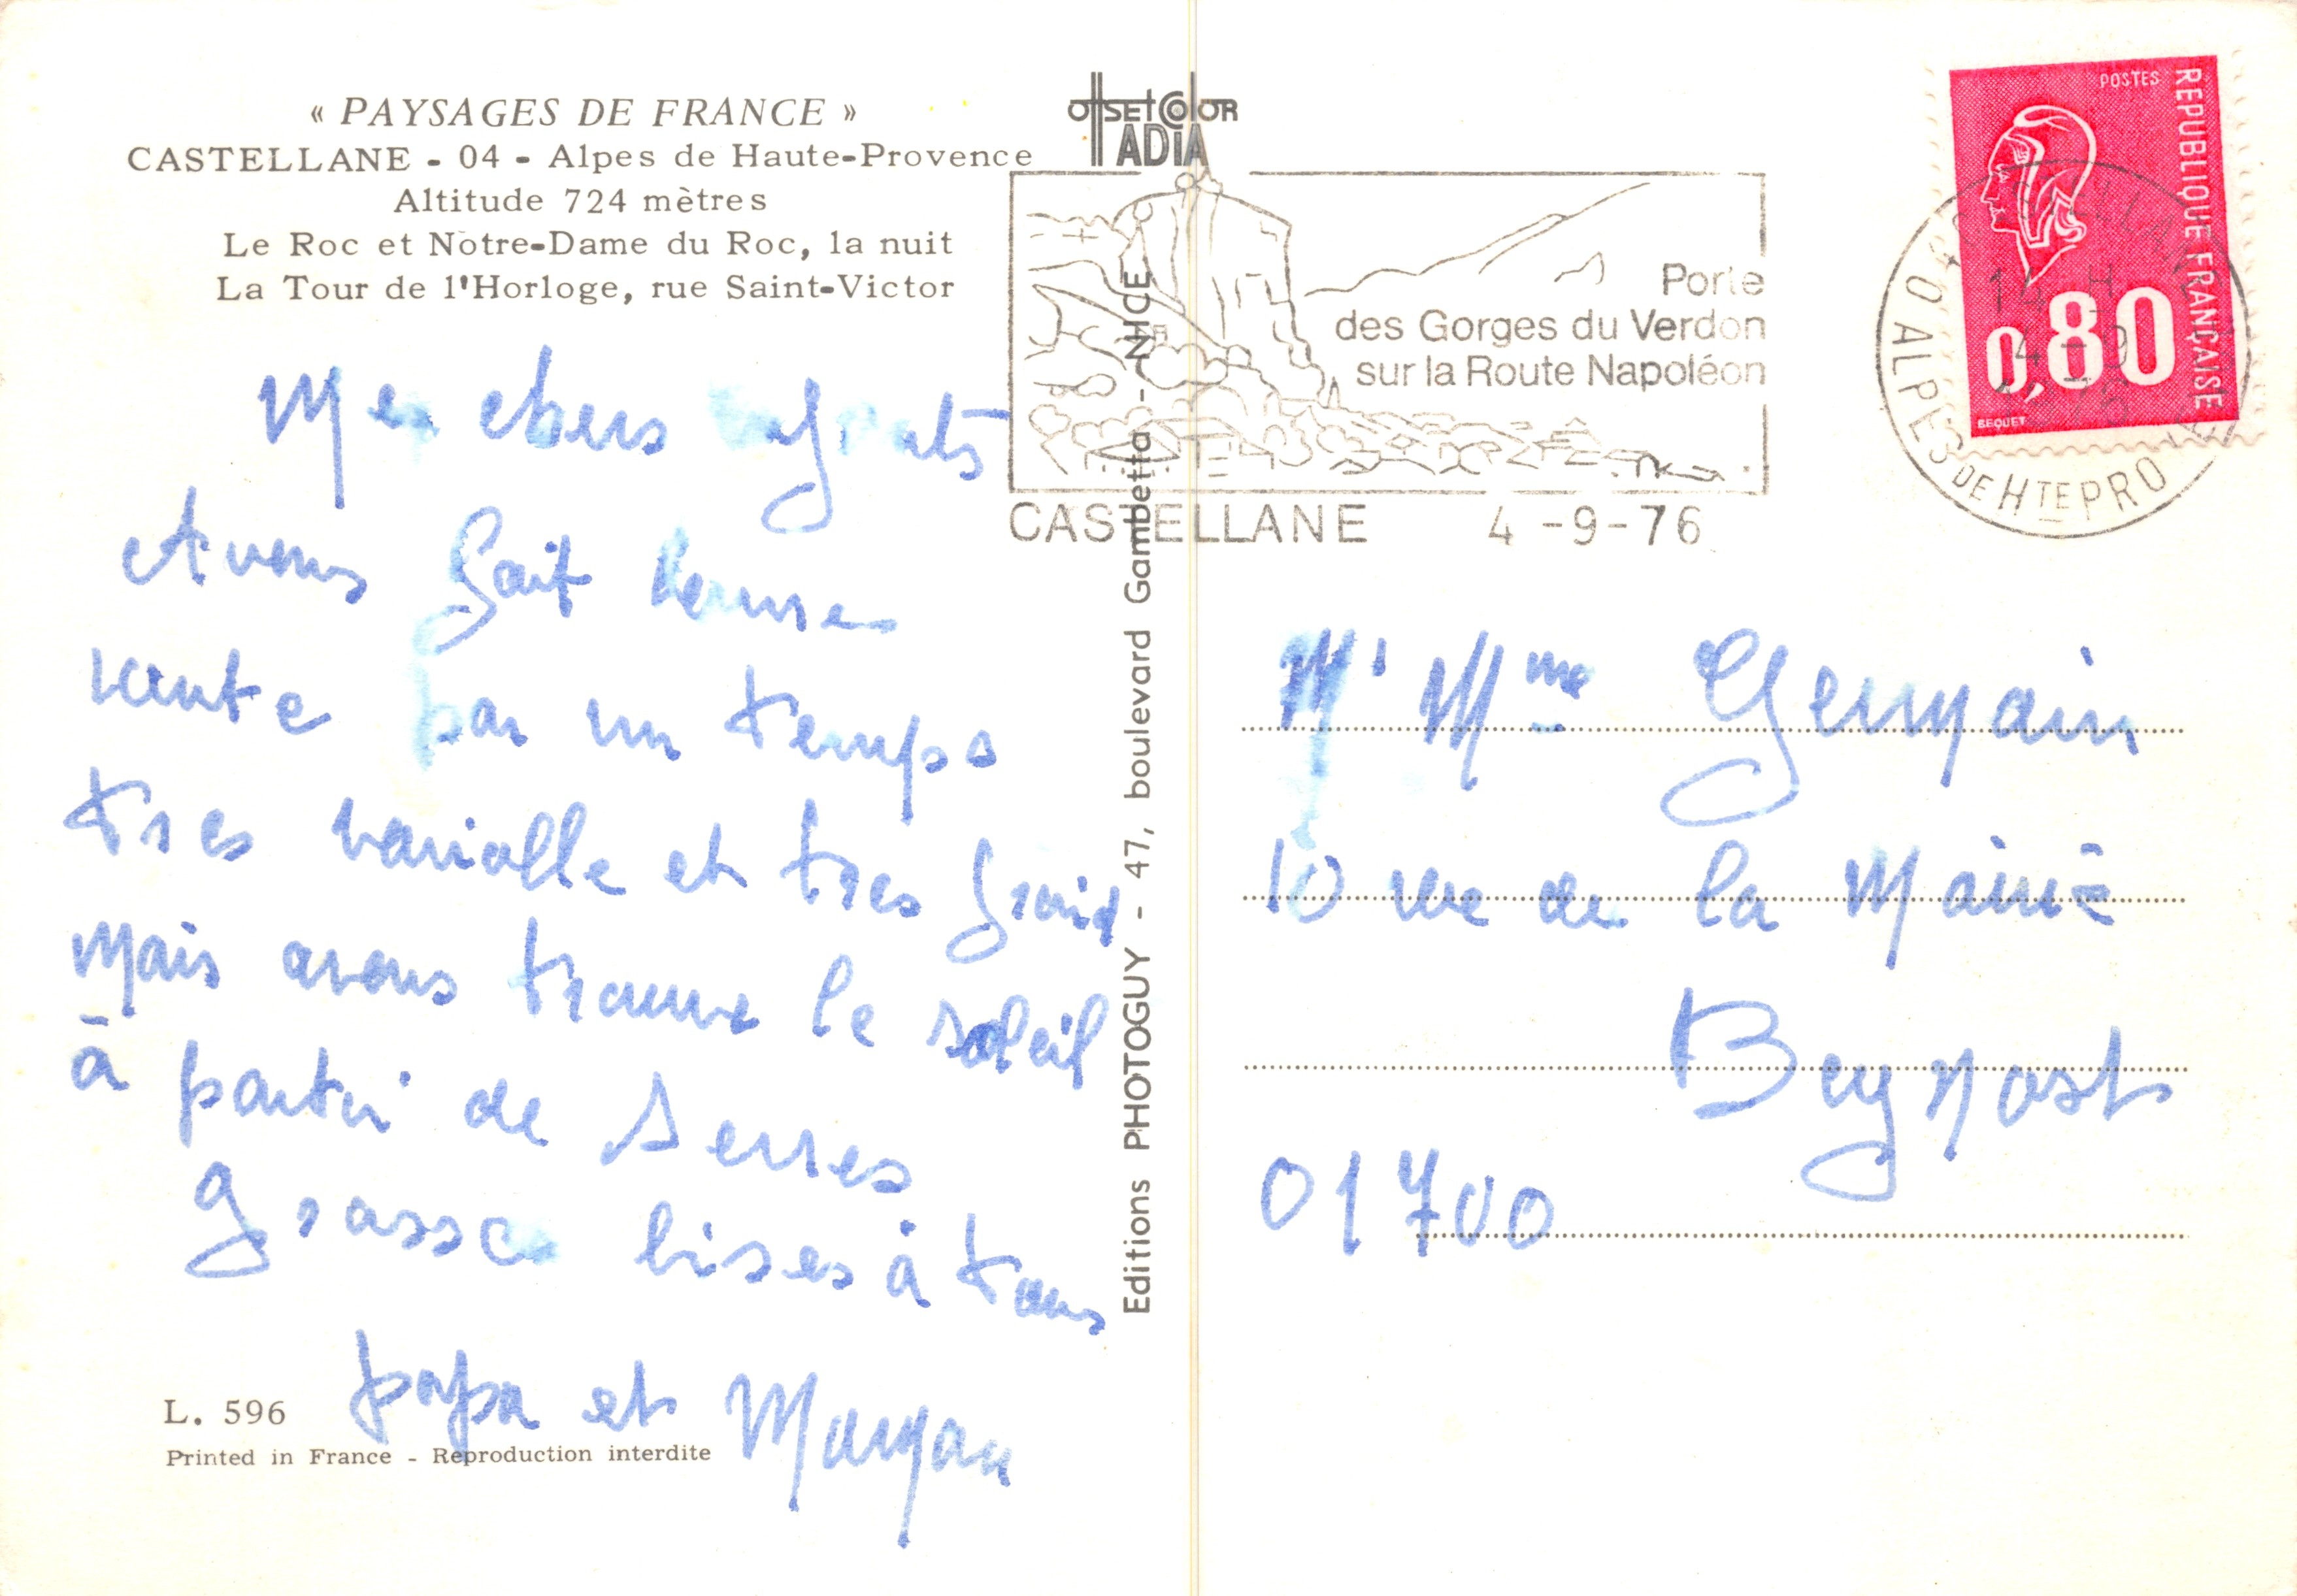 « PAYSAGES DE FRANCE »
CASTELLANE - 04 - Alpes de Haute-Provence
Altitude 724 mètres
Le Roc et Notre-Dame du Roc, la nuit
La Tour de l'Horloge, rue Saint-Victor
Mes chers enfants
Avons fait bonne
route par un temps
tres variable et tres froid
mais avons trouve le soleil
à partir de Serres
grosses bises à tous
papa et
L. 596
Printed in France - Reproduction interdite
OffSET COlOR
ADIA
Editions PHOTOGUY - 47, boulevard Gambetta - NICE
Porte
des Gorges du Verdon
sur la Route Napoléon
CASTELLANE 4 -9-76
POSTES
REPUBLIQUE FRANÇAISE
0,80
BEQUET
ALPES DE HTE PRO
Mr Mme Germain
10 rue de la Mairie
Beynost
01700